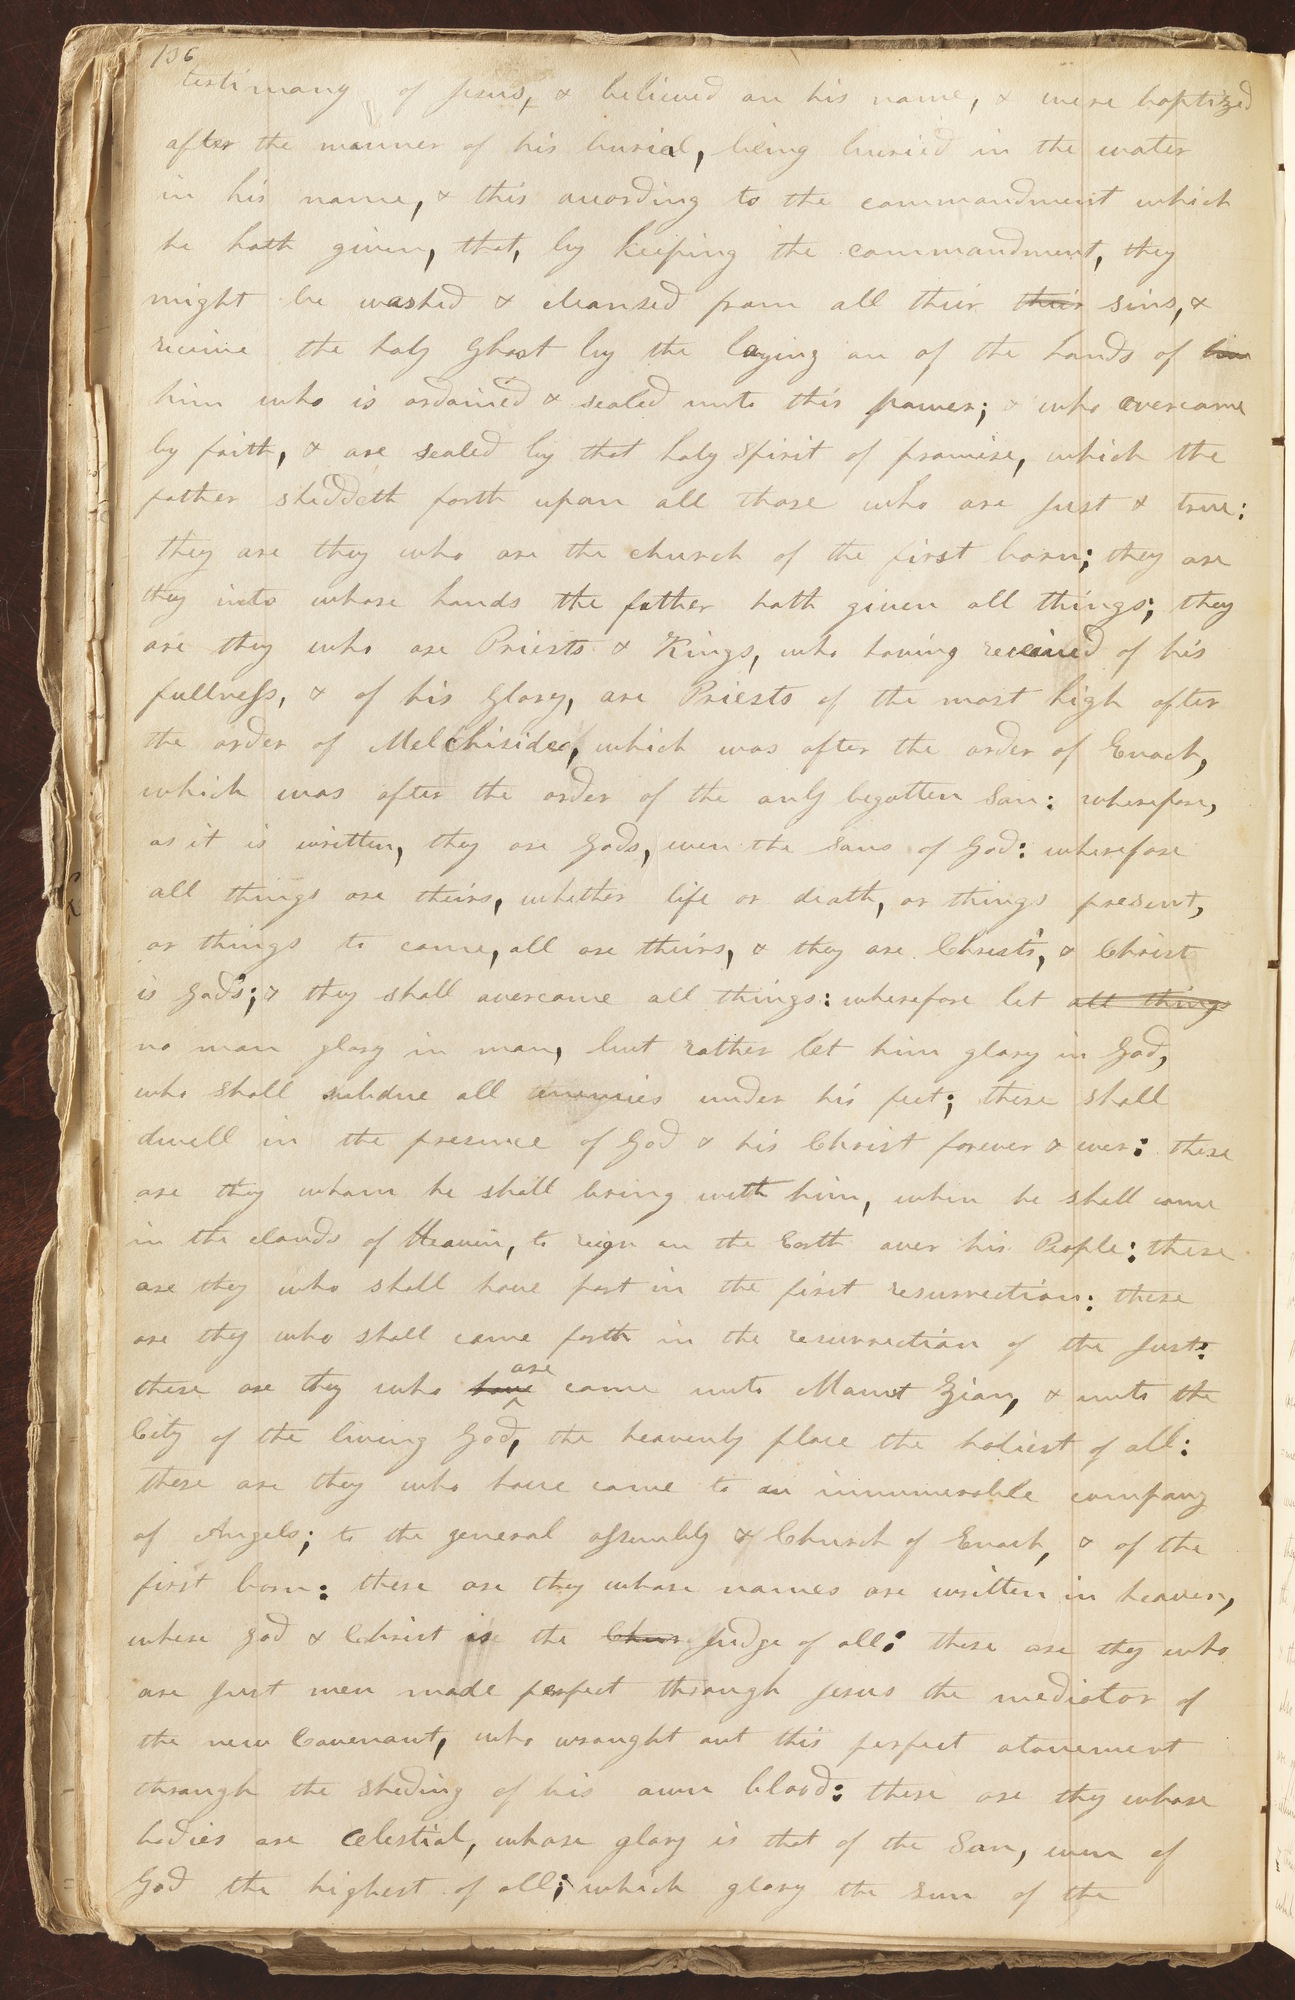 136
testimony of Jesus, & believed on his name, & were baptized
after the manner of his burial, being buried in the water
in his name, & this according to the commandment which
he hath given, that, by keeping the commandment, they
might be washed & cleansed from all their their sins, &
receive the holy Ghost by the laying on of the hands of him
him who is ordained & sealed unto this power; & who overcome
by faith, & are sealed by that holy spirit of promise, which the
father sheddeth forth upon all those who are Just & true:
they are they who are the church of the first born; they are
they into whose hands the father hath given all things; they
are they who are Priests & Kings, who having received of his
fullness, & of his glory, are Priests of the most high after
the order of Melchisidec, which was after the order of Enoch,
which was after the order of the only begotten Son: wherefore,
as it is written, they are Gods, even the sons of God: wherefore
all things are theirs, whether life or death, or things present,
or things to come, all are theirs, & they are Christ's, & Christ
is God's; & they shall overcome all things: wherefore let all things
no man glory in man, but rather let him glory in God,
who shall subdue all enemies under his feet; these shall
dwell in the presence of God & his Christ forever & ever: these
are they whom he shall bring with him, when he shall come
in the clouds of Heaven, to reign on the Earth over his People: these
are they who shall have part in the first resurrection: these
are they who shall come forth in the resurrection of the Just:
these are they who have are come unto Mount Zion, & unto the
City of the living God, the heavenly place the holiest of all:
these are they who have come to an innumerable company
of Angels; to the general assembly & Church of Enoch, & of the
first born: these are they whose names are written in heaven,
where God & Christ is the Judge of all: these are they who
are Just men made perfect through Jesus the mediator of
the new Covenant, who wrought out this perfect atonement
through the sheding of his own blood: these are they whose
bodies are Celestial, whose glory is that of the Son, even of
God the highest of all; which glory the sun of the